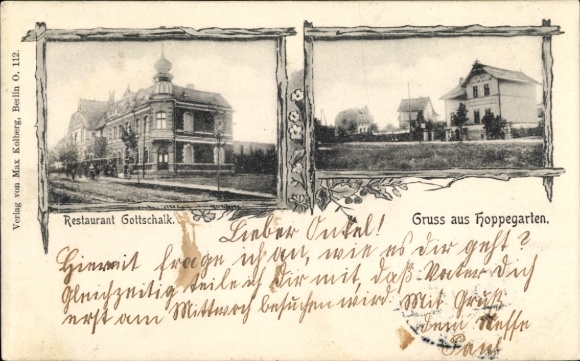 Verlag von Max Kolberg, Berlin O. 112.
Restaurant Gottschalk.
Gruss aus Hoppegarten.
Lieber Onkel!
Hiermit frage ich an, wie es dir geht?
Gleichzeitig teile ich Dir mit, daß Vater Dich
erst am Mittwoch besuchen wird. Mit Gruß
dein Neffe
Paul